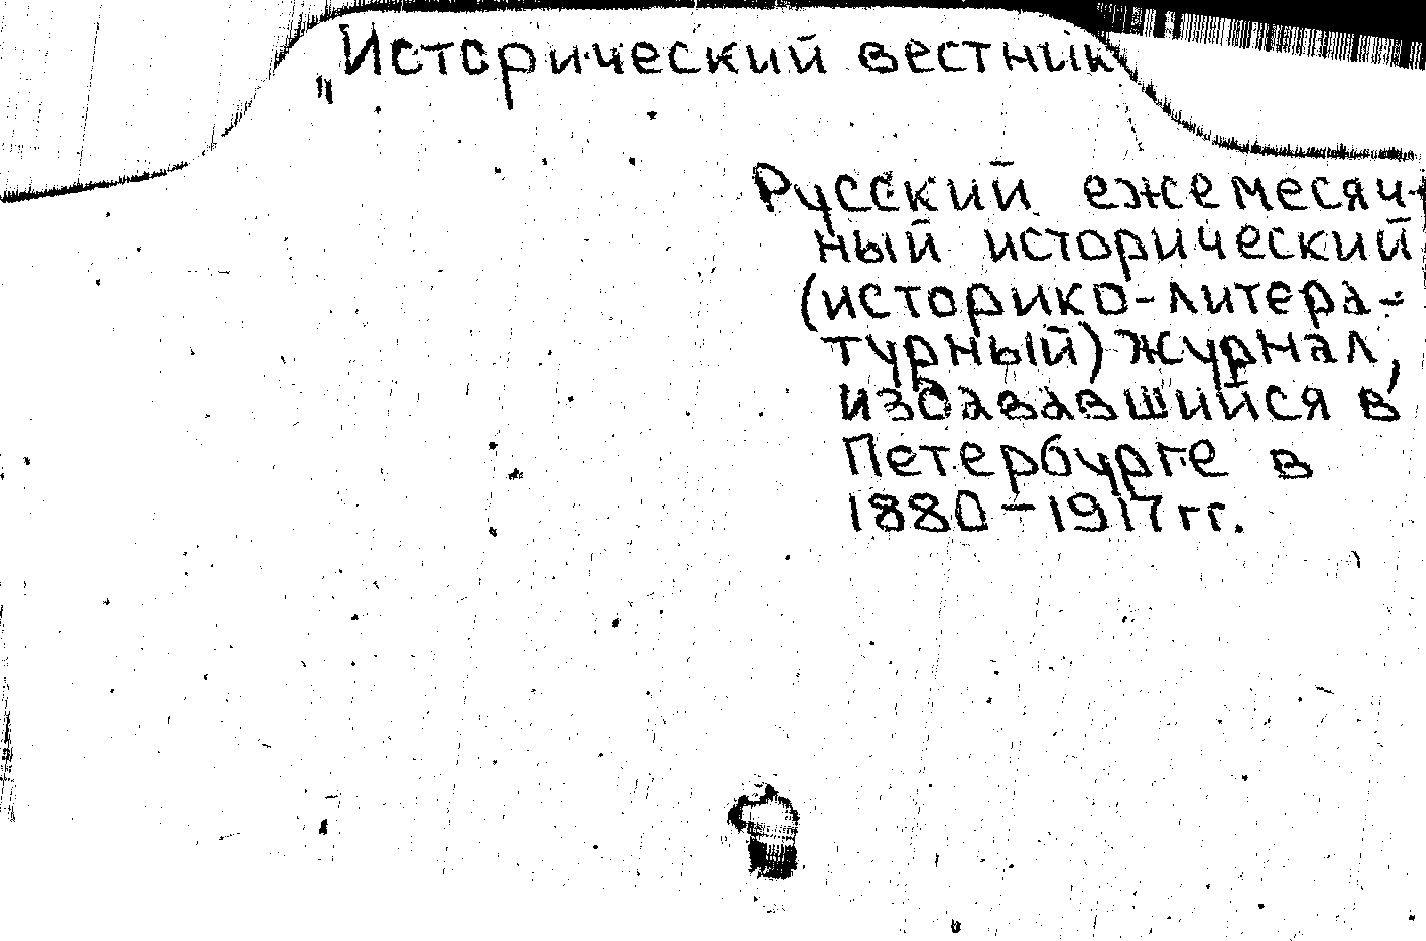 „Исторический вестник
Русский ежемесяч-
ный исторический
(историко-литера-
турный) журнал,
издававшийся в
Петербурге в
1880-1917 гг.